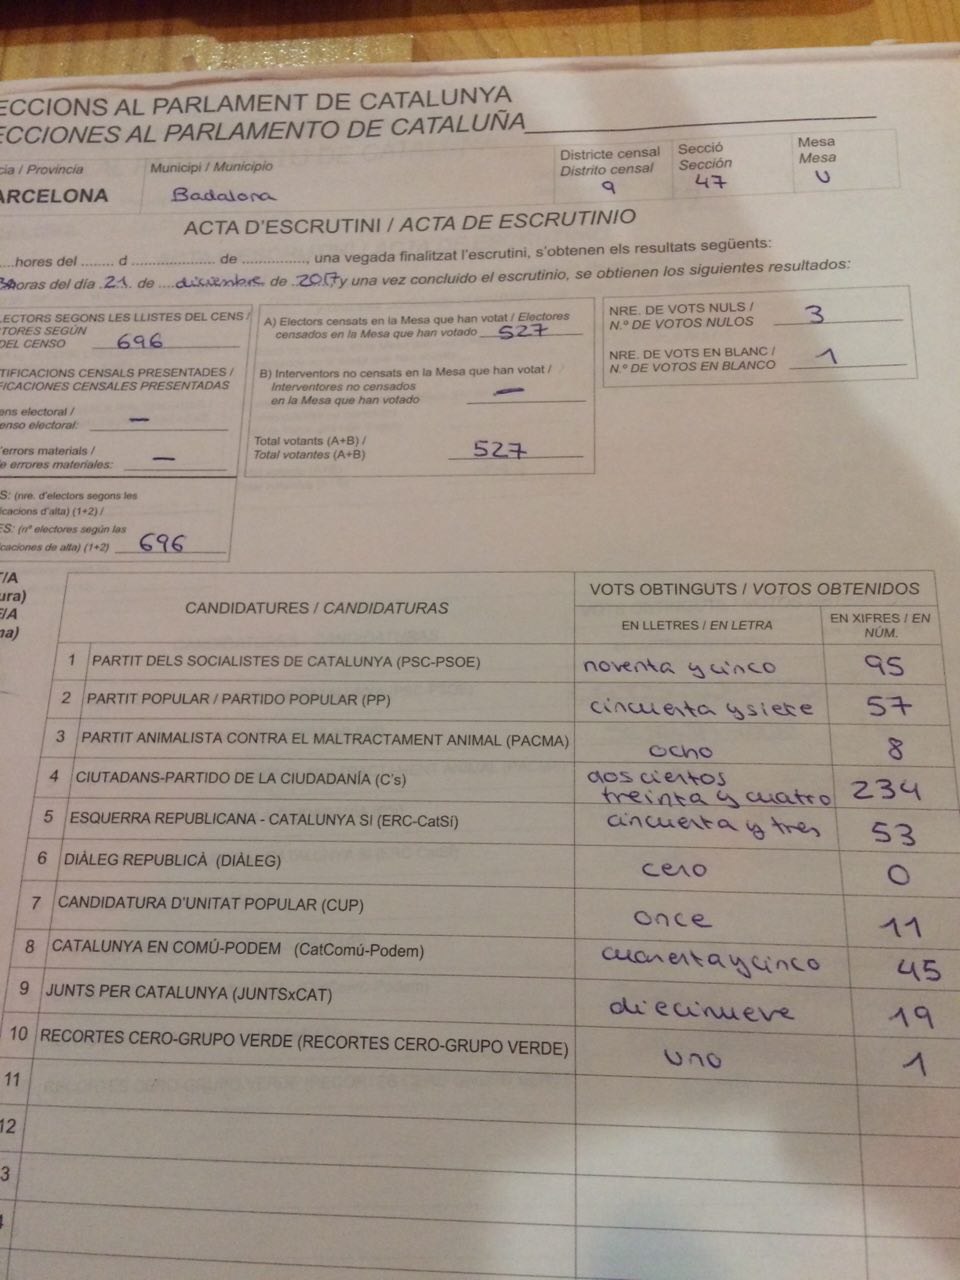 ECCIONS AL PARLAMENT DE CATALUNYA
ECCIONES AL PARLAMENTO DE CATALUÑA
cia / Provincia
ARCELONA
Municipi / Municipio
Badalona
Districte censal
Distrito censal
9
Secció
Sección
47
Mesa
Mesa
U
ACTA D'ESCRUTINI / ACTA DE ESCRUTINIO
....hores del ........ d .................... de ..............., una vegada finalitzat l'escrutini, s'obtenen els resultats següents:
horas del día 21 de ....diciembre de 2017 y una vez concluido el escrutinio, se obtienen los siguientes resultados:
LECTORS SEGONS LES LLISTES DEL CENS /
TORES SEGÚN
DEL CENSO 696
TIFICACIONS CENSALS PRESENTADES /
FICACIONES CENSALES PRESENTADAS
ens electoral /
enso electoral: —
'errors materials /
e errores materiales: —
S: (nre. d'electors segons les
icacions d'alta) (1+2) /
ES: (nº electores según las
icaciones de alta) (1+2) 696
A) Electors censats en la Mesa que han votat / Electores
censados en la Mesa que han votado 527
B) Interventors no censats en la Mesa que han votat /
Interventores no censados
en la Mesa que han votado —
Total votants (A+B) /
Total votantes (A+B) 527
NRE. DE VOTS NULS /
N.º DE VOTOS NULOS 3
NRE. DE VOTS EN BLANC /
N.º DE VOTOS EN BLANCO 1
T/A
ura)
E/A
na)
CANDIDATURES / CANDIDATURAS
VOTS OBTINGUTS / VOTOS OBTENIDOS
EN LLETRES / EN LETRA
EN XIFRES / EN
NÚM.
1 PARTIT DELS SOCIALISTES DE CATALUNYA (PSC-PSOE) noventa y cinco 95
2 PARTIT POPULAR / PARTIDO POPULAR (PP) cincuenta y siete 57
3 PARTIT ANIMALISTA CONTRA EL MALTRACTAMENT ANIMAL (PACMA) ocho 8
4 CIUTADANS-PARTIDO DE LA CIUDADANÍA (C's) doscientos
treinta y cuatro 234
5 ESQUERRA REPUBLICANA - CATALUNYA SI (ERC-CatSí) cincuenta y tres 53
6 DIÀLEG REPUBLICÀ (DIÀLEG) cero 0
7 CANDIDATURA D'UNITAT POPULAR (CUP) once 11
8 CATALUNYA EN COMÚ-PODEM (CatComú-Podem) cuarenta y cinco 45
9 JUNTS PER CATALUNYA (JUNTSxCAT) diecinueve 19
10 RECORTES CERO-GRUPO VERDE (RECORTES CERO-GRUPO VERDE) uno 1
11
12
3